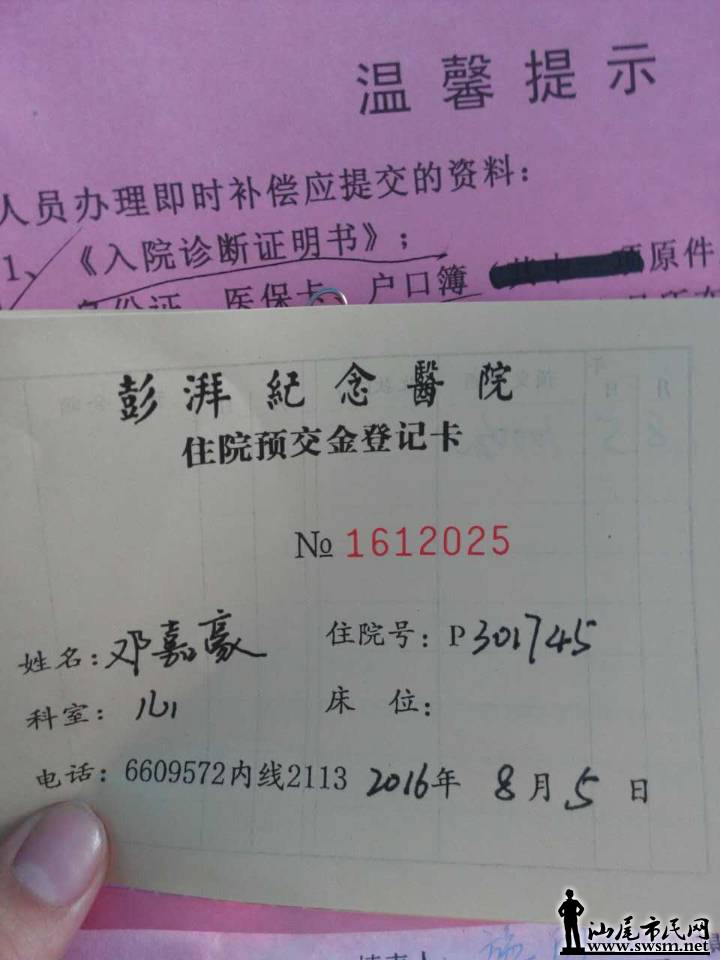 温馨提示
人员办理即时补偿应提交的资料：
1、《入院诊断证明书》；
身份证、医保卡、户口簿（其中 原件
彭湃紀念醫院
住院预交金登记卡
№ 1612025
姓名：邓嘉豪 住院号：P301745
科室： 床 位：
电话：6609572内线2113 2016年 8月5日
汕尾市民网
www.swsm.net